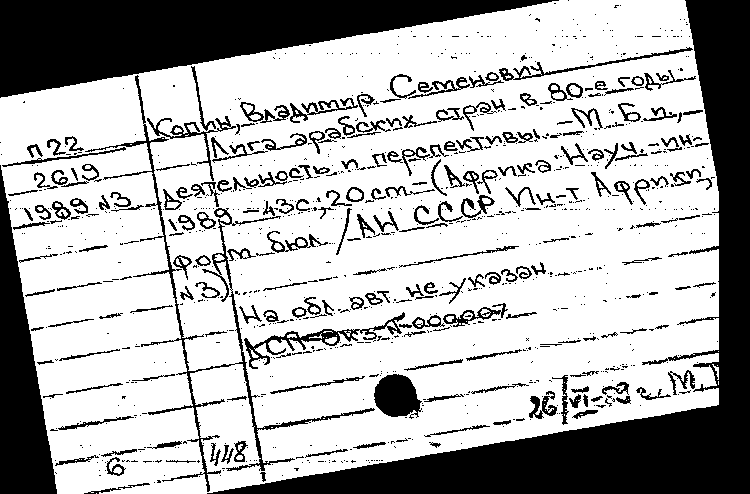 П22
2619
1989 №3
Копин, Владимир Семенович
Лига арабских стран в 80-е годы:
деятельность и перспективы. - М.: Б.и.,
1989. - 43с.; 20см - (Африка: Науч.-ин-
форм. бюл. / АН СССР Ин-т Африки;
№3).
На обл. авт. не указан.
ДСП. Экз. №000007
26/VI-89 г. М.Т
6
448